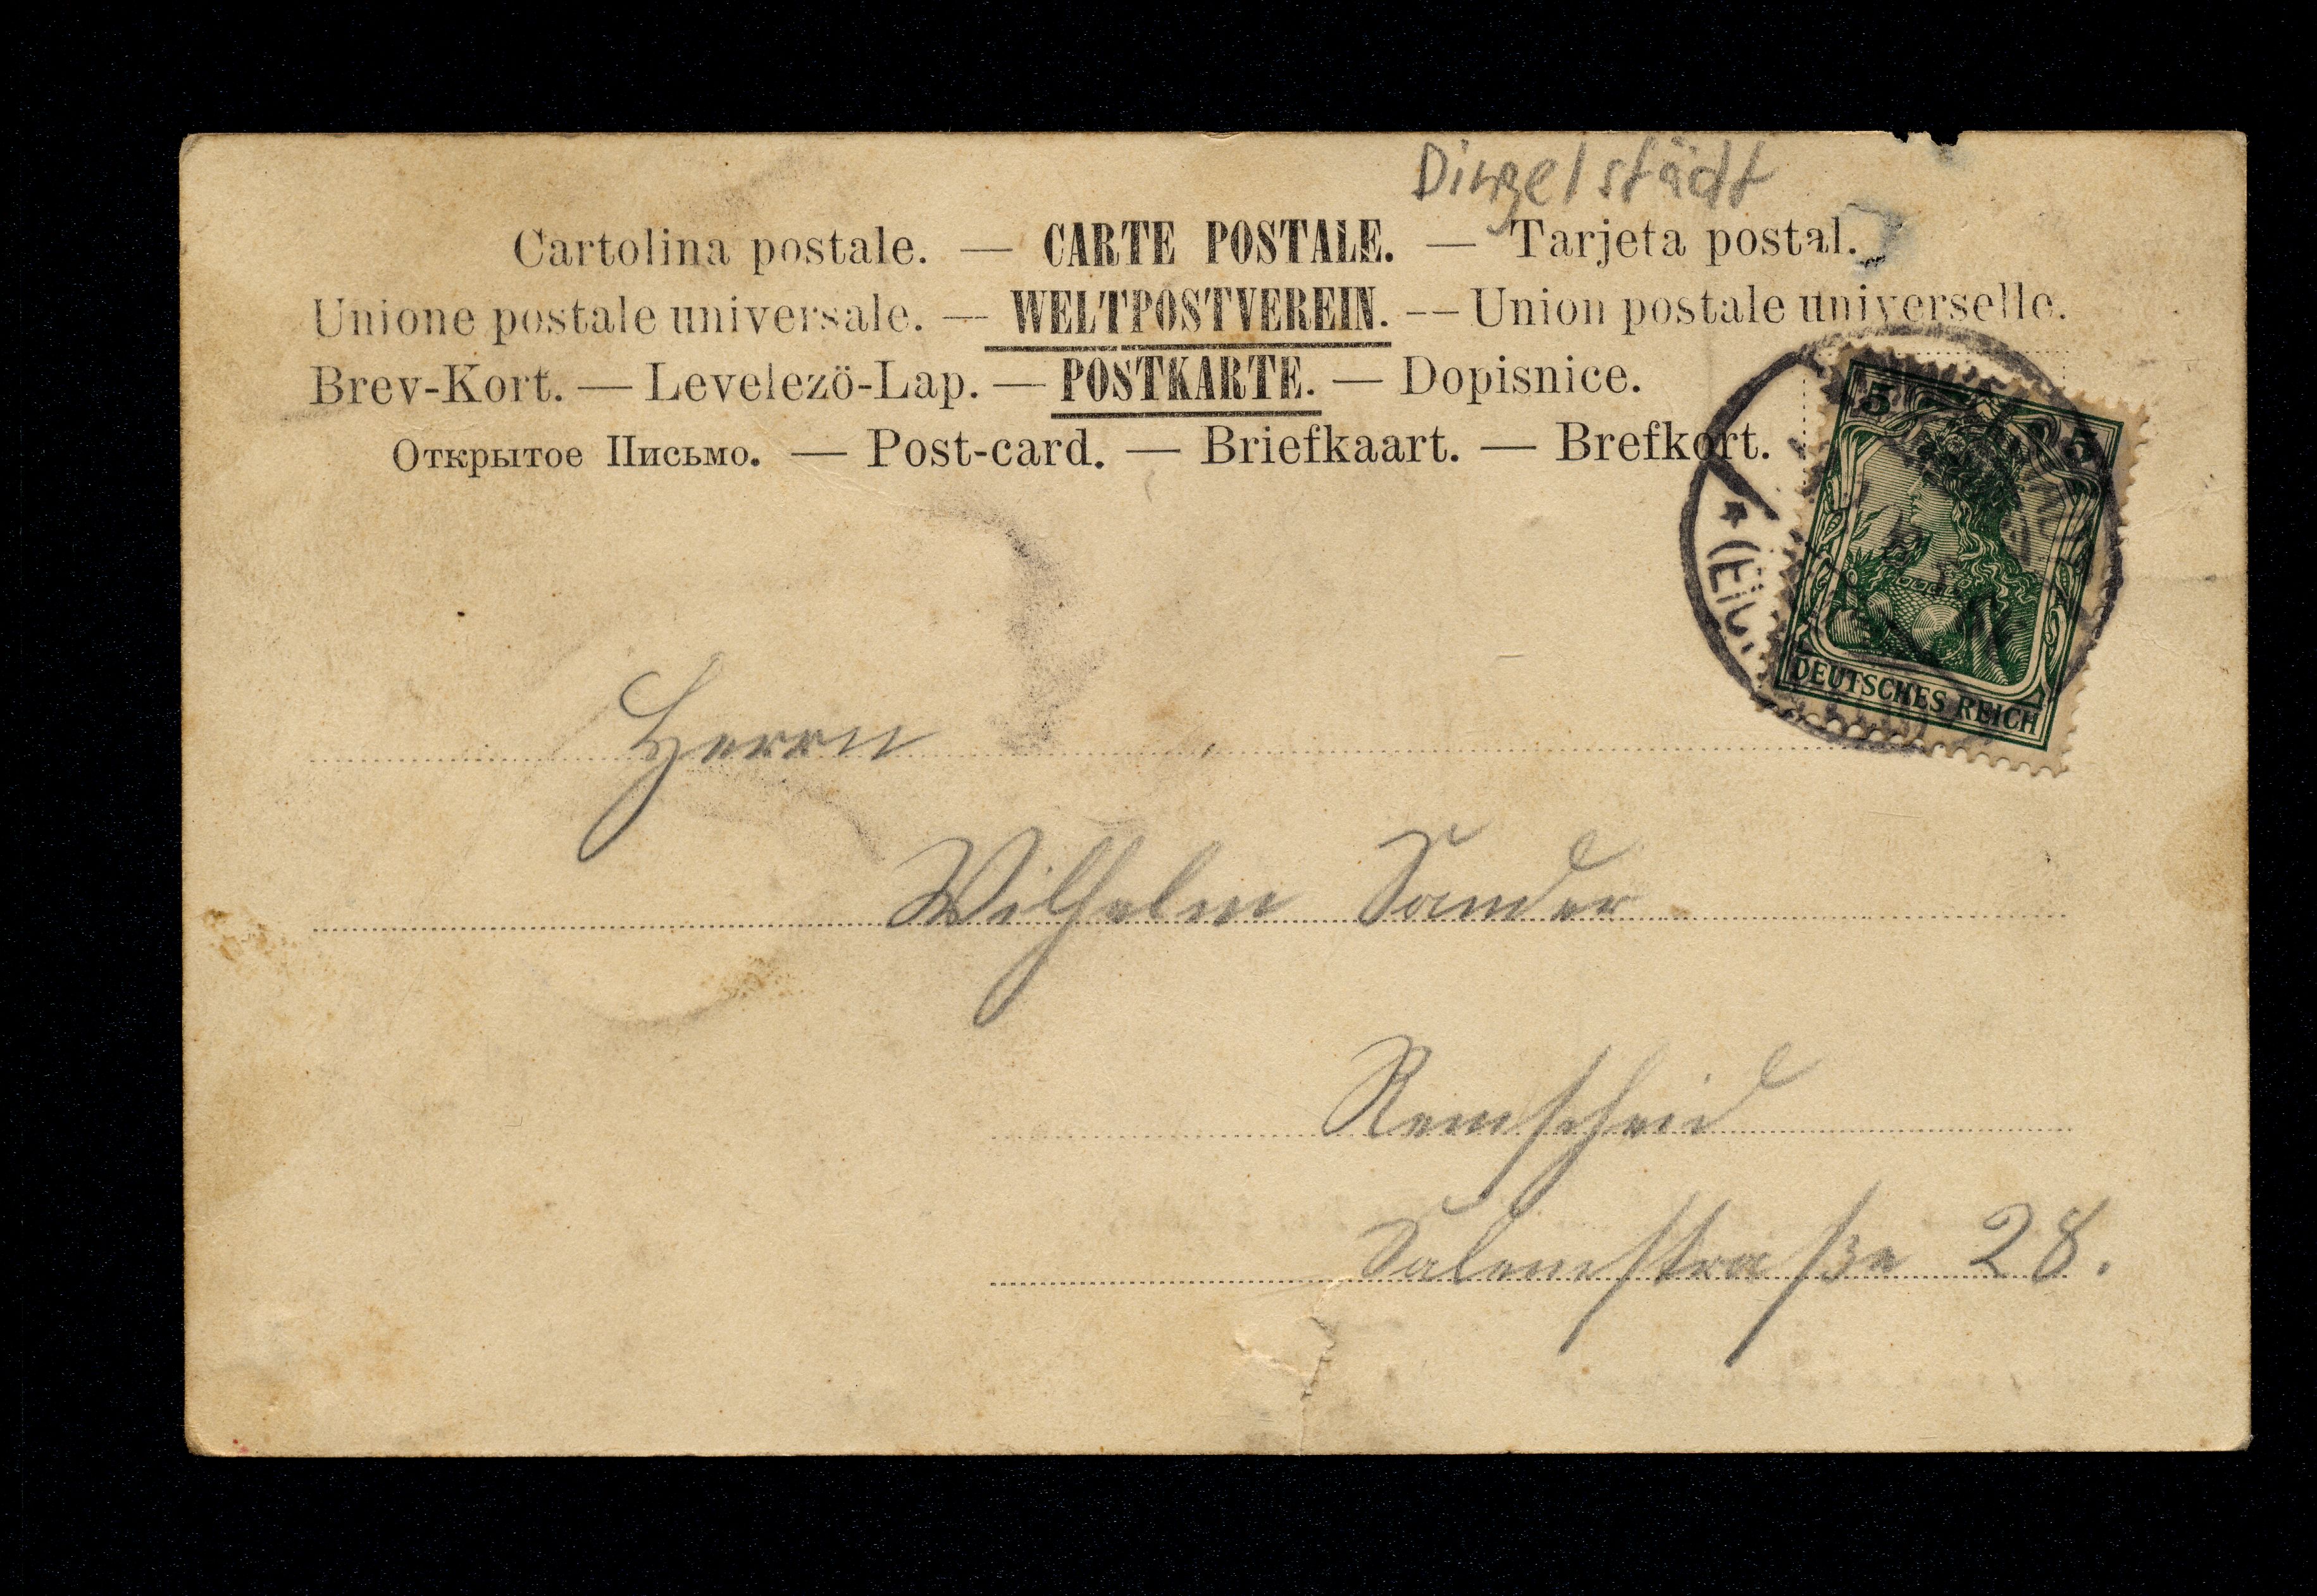 Dingelstädt
Cartolina postale. — CARTE POSTALE. — Tarjeta postal.
Unione postale universale. — WELTPOSTVEREIN. — Union postale universelle.
Brev-Kort. — Levelezö-Lap. — POSTKARTE. — Dopisnice.
Открытое Письмо. — Post-card. — Briefkaart. — Brefkort.
5 5
DEUTSCHES REICH
Herrn
Wilhelm Sander
Remscheid
Salemstraße 28.